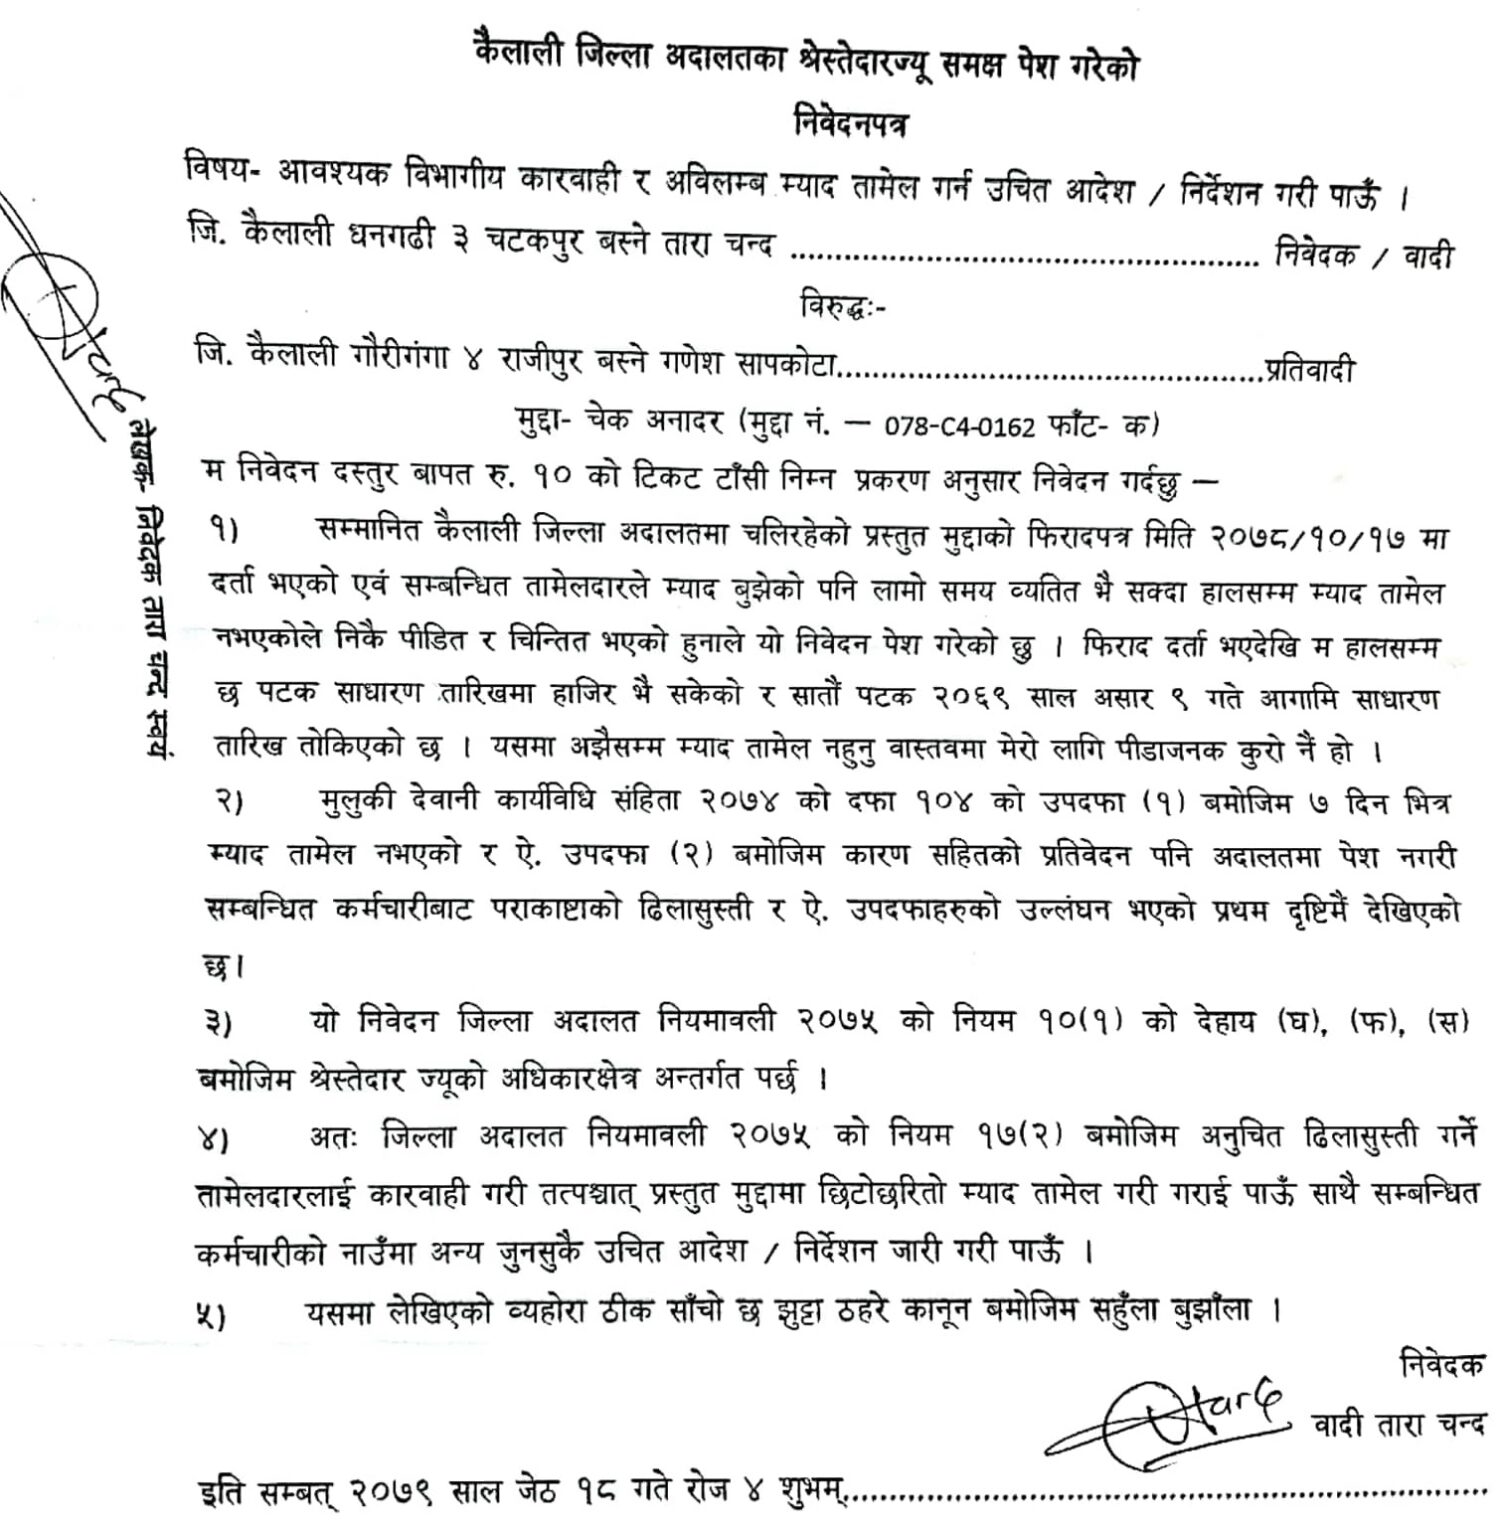 कैलाली जिल्ला अदालतका श्रेस्तेदारज्यू समक्ष पेश गरेको
निवेदनपत्र
विषय- आवश्यक विभागीय कारवाही र अविलम्ब म्याद तामेल गर्न उचित आदेश / निर्देशन गरी पाऊँ ।
जि. कैलाली धनगढी ३ चटकपुर बस्ने तारा चन्द ...................................................... निवेदक / वादी
विरुद्धः-
जि. कैलाली गौरीगंगा ४ राजीपुर बस्ने गणेश सापकोटा.................................................प्रतिवादी
मुद्दा- चेक अनादर (मुद्दा नं. — 078-C4-0162 फाँट- क)
म निवेदन दस्तुर बापत रु. १० को टिकट टाँसी निम्न प्रकरण अनुसार निवेदन गर्दछु —
१) सम्मानित कैलाली जिल्ला अदालतमा चलिरहेको प्रस्तुत मुद्दाको फिरादपत्र मिति २०७८/१०/१७ मा
दर्ता भएको एवं सम्बन्धित तामेलदारले म्याद बुझेको पनि लामो समय व्यतित भै सक्दा हालसम्म म्याद तामेल
नभएकोले निकै पीडित र चिन्तित भएको हुनाले यो निवेदन पेश गरेको छु । फिराद दर्ता भएदेखि म हालसम्म
छ पटक साधारण तारिखमा हाजिर भै सकेको र सातौं पटक २०६९ साल असार ९ गते आगामि साधारण
तारिख तोकिएको छ । यसमा अझैसम्म म्याद तामेल नहुनु वास्तवमा मेरो लागि पीडाजनक कुरो नैं हो ।
२) मुलुकी देवानी कार्यविधि संहिता २०७४ को दफा १०४ को उपदफा (१) बमोजिम ७ दिन भित्र
म्याद तामेल नभएको र ऐ. उपदफा (२) बमोजिम कारण सहितको प्रतिवेदन पनि अदालतमा पेश नगरी
सम्बन्धित कर्मचारीबाट पराकाष्टाको ढिलासुस्ती र ऐ. उपदफाहरुको उल्लंघन भएको प्रथम दृष्टिमैं देखिएको
छ।
३) यो निवेदन जिल्ला अदालत नियमावली २०७५ को नियम १०(१) को देहाय (घ), (फ), (स)
बमोजिम श्रेस्तेदार ज्यूको अधिकारक्षेत्र अन्तर्गत पर्छ ।
४) अतः जिल्ला अदालत नियमावली २०७५ को नियम १७(२) बमोजिम अनुचित ढिलासुस्ती गर्ने
तामेलदारलाई कारवाही गरी तत्पश्चात् प्रस्तुत मुद्दामा छिटोछरितो म्याद तामेल गरी गराई पाऊँ साथै सम्बन्धित
कर्मचारीको नाउँमा अन्य जुनसुकै उचित आदेश / निर्देशन जारी गरी पाऊँ ।
५) यसमा लेखिएको व्यहोरा ठीक साँचो छ झुट्टा ठहरे कानून बमोजिम सहुँला बुझाँला ।
निवेदक
वादी तारा चन्द
इति सम्बत् २०७९ साल जेठ १८ गते रोज ४ शुभम्...........................................................................
लेखक- निवेदक तारा चन्द स्वयं